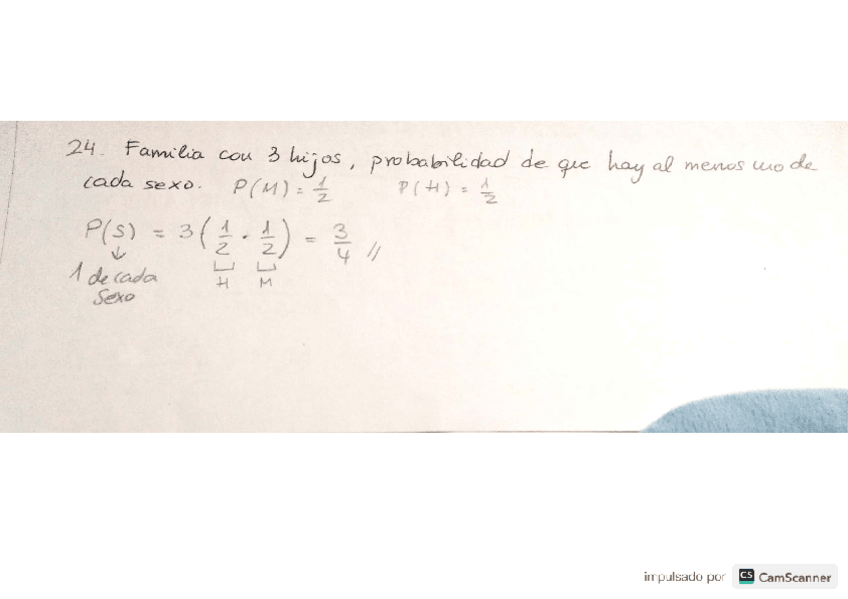 24. Familia con 3 hijos, probabilidad de que hay al menos uno de
cada sexo. P(M) = 1/2 P(H) = 1/2
P(S) = 3(1/2 · 1/2) = 3/4 //
↓
1 de cada H M
Sexo
impulsado por CS CamScanner